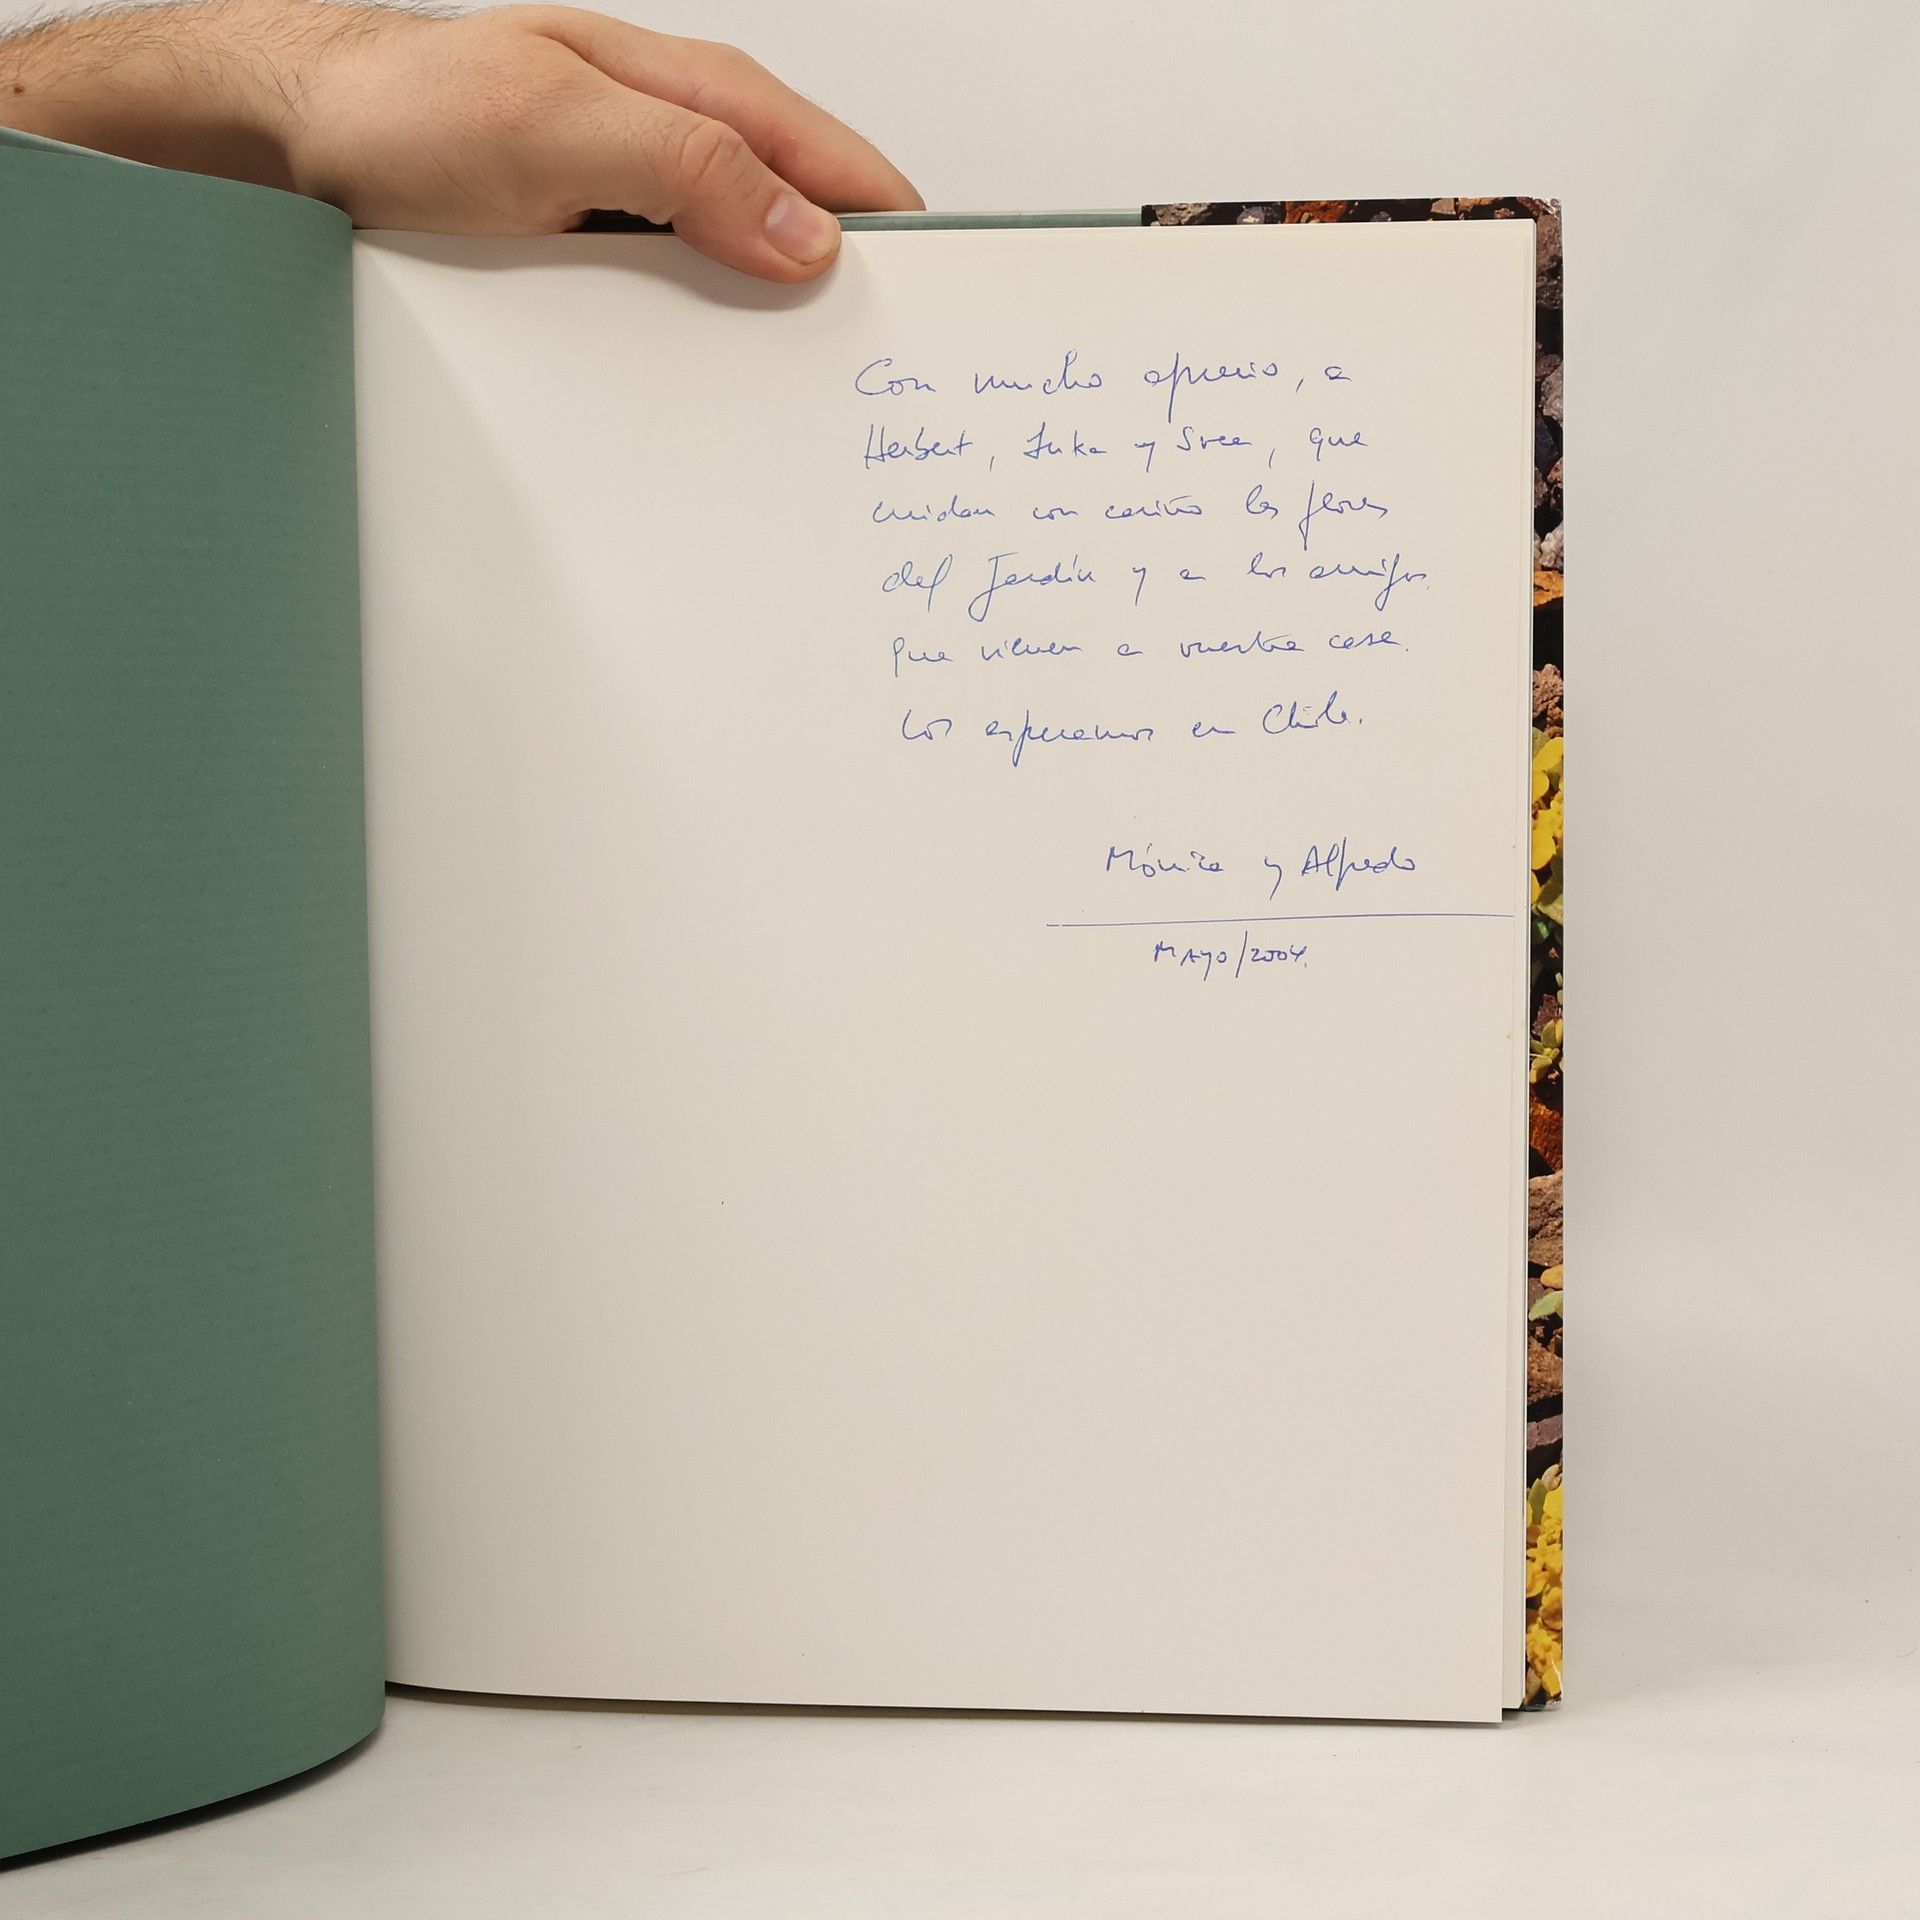 Con mucho aprecio, a
Herbert, y que
cuidan con cariño las flores
del Jardín y a los amigos
que vienen a vuestra casa.
Los esperamos en Chile.
Mónica y Alfredo
MAYO/2004.